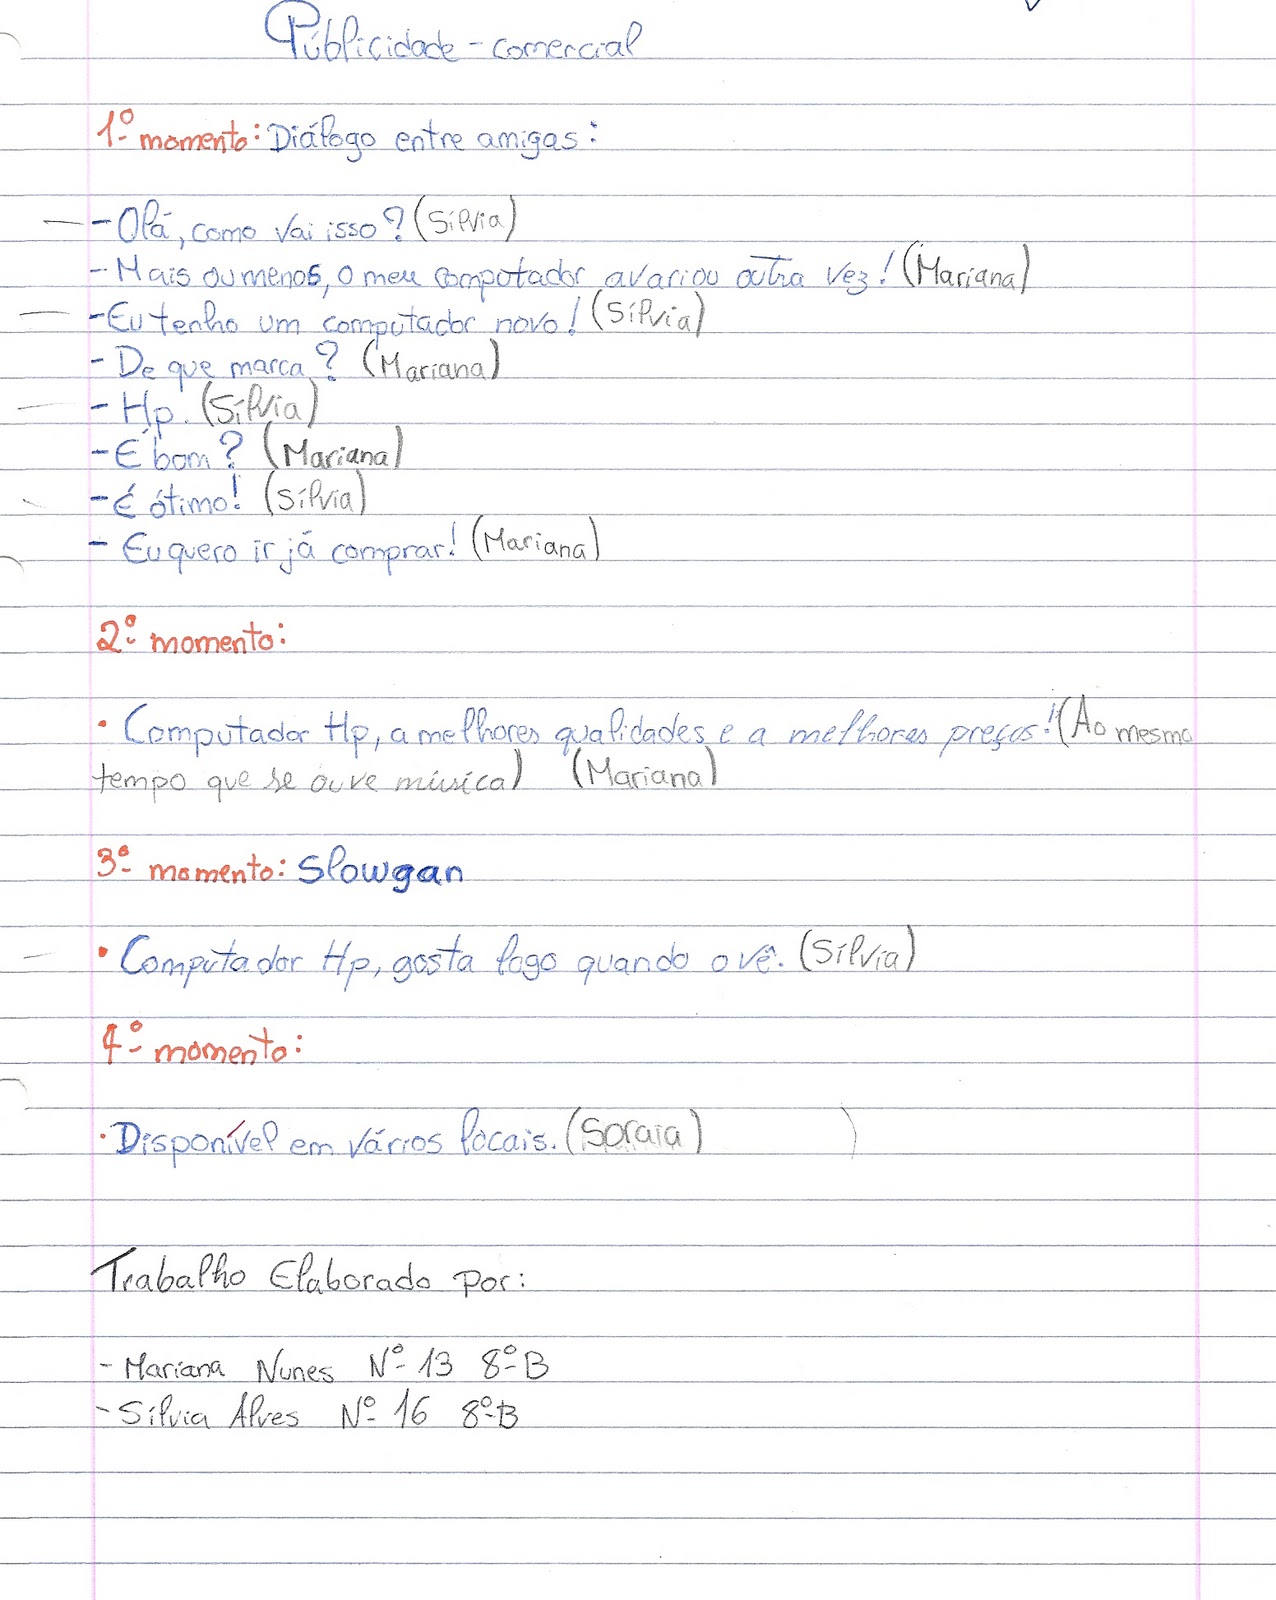 Públicidade - comercial
1º momento: Diálogo entre amigas:
- Olá, como vai isso? (Sílvia)
- Mais ou menos, o meu computador avariou outra vez! (Mariana)
- Eu tenho um computador novo! (Sílvia)
- De que marca? (Mariana)
- Hp. (Sílvia)
- É bom? (Mariana)
- É ótimo! (Sílvia)
- Eu quero ir já comprar! (Mariana)
2º momento:
• Computador Hp, a melhores qualidades e a melhores preços! (Ao mesmo
tempo que se ouve música) (Mariana)
3º momento: Slowgan
• Computador Hp, gosta logo quando o vê. (Sílvia)
4º momento:
• Disponível em vários locais. (Soraia)
Trabalho Elaborado por:
- Mariana Nunes Nº 13 8º B
- Sílvia Alves Nº 16 8º B